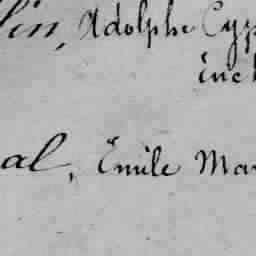 lin, Adolphe Cyp
inc
al, Émile Mar